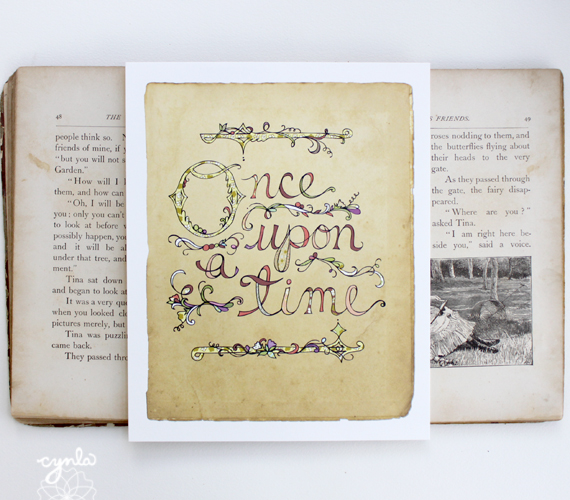 48 THE
people think so. N
friends of mine, if y
"but you will not s
Garden."
"How will I k
them, and how can
"Oh, I will be
you; only you can't
to look at before w
possibly happen, you
and it will be a
under that tree, and
ment."
Tina sat down
and began to look at
It was a very que
when you looked clo
pictures merely, but
Tina was puzzlin
came back.
They passed thro
Once
upon
a
time
S FRIENDS. 49
roses nodding to them, and
the butterflies flying about
their heads to the very
gate.
As they passed through
the gate, the fairy disap-
peared.
"Where are you?"
asked Tina.
"I am right here be-
side you," said a voice.
cynla